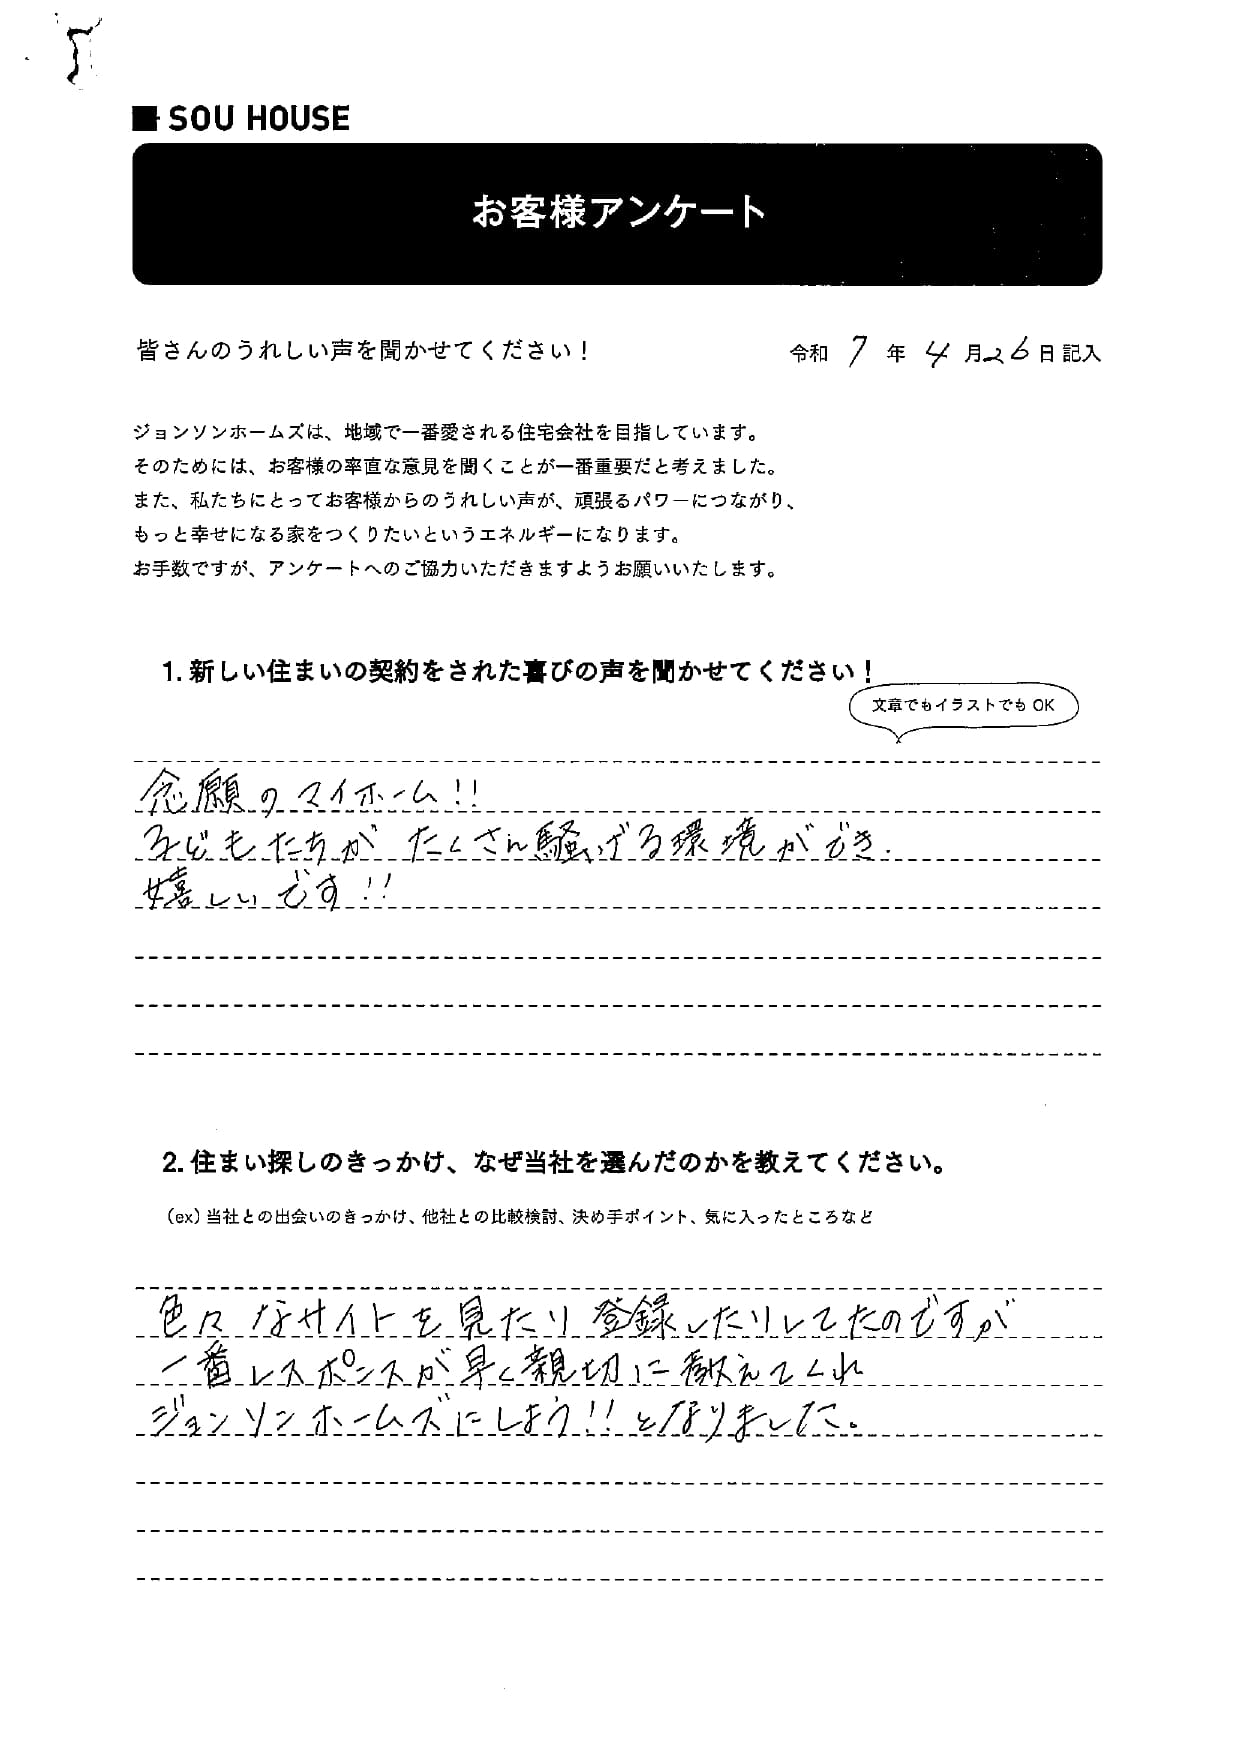 SOU HOUSE
お客様アンケート
皆さんのうれしい声を聞かせてください！
令和 7 年 4 月 26 日 記入
ジョンソンホームズは、地域で一番愛される住宅会社を目指しています。
そのためには、お客様の率直な意見を聞くことが一番重要だと考えました。
また、私たちにとってお客様からのうれしい声が、頑張るパワーにつながり、
もっと幸せになる家をつくりたいというエネルギーになります。
お手数ですが、アンケートへのご協力いただきますようお願いいたします。
1. 新しい住まいの契約をされた喜びの声を聞かせてください！
文章でもイラストでも OK
念願のマイホーム!!
子どもたちが たくさん騒げる環境ができ.
嬉しいです!!
2. 住まい探しのきっかけ、なぜ当社を選んだのかを教えてください。
（ex）当社との出会いのきっかけ、他社との比較検討、決め手ポイント、気に入ったところなど
色々なサイトを見たり登録したりしてたのですが
一番レスポンスが早く親切に教えてくれ
ジョンソンホームズにしよう!!となりました。